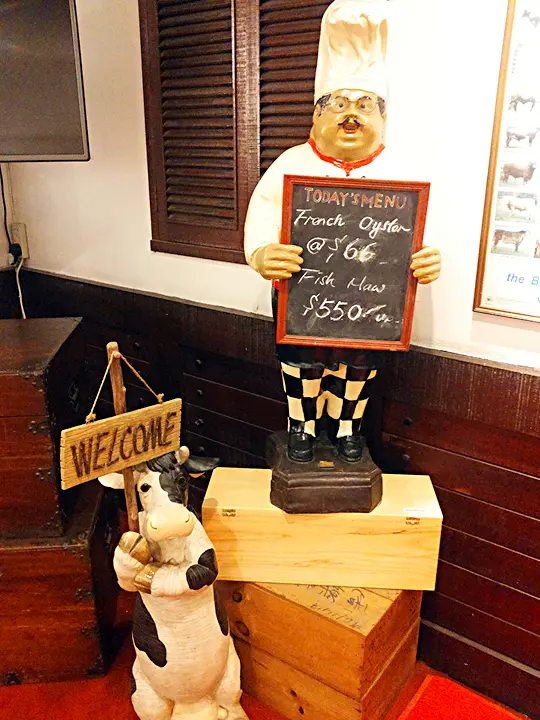 TODAY'S MENU
French Oyster
@ $66
Fish Maw
$550
WELCOME
the B